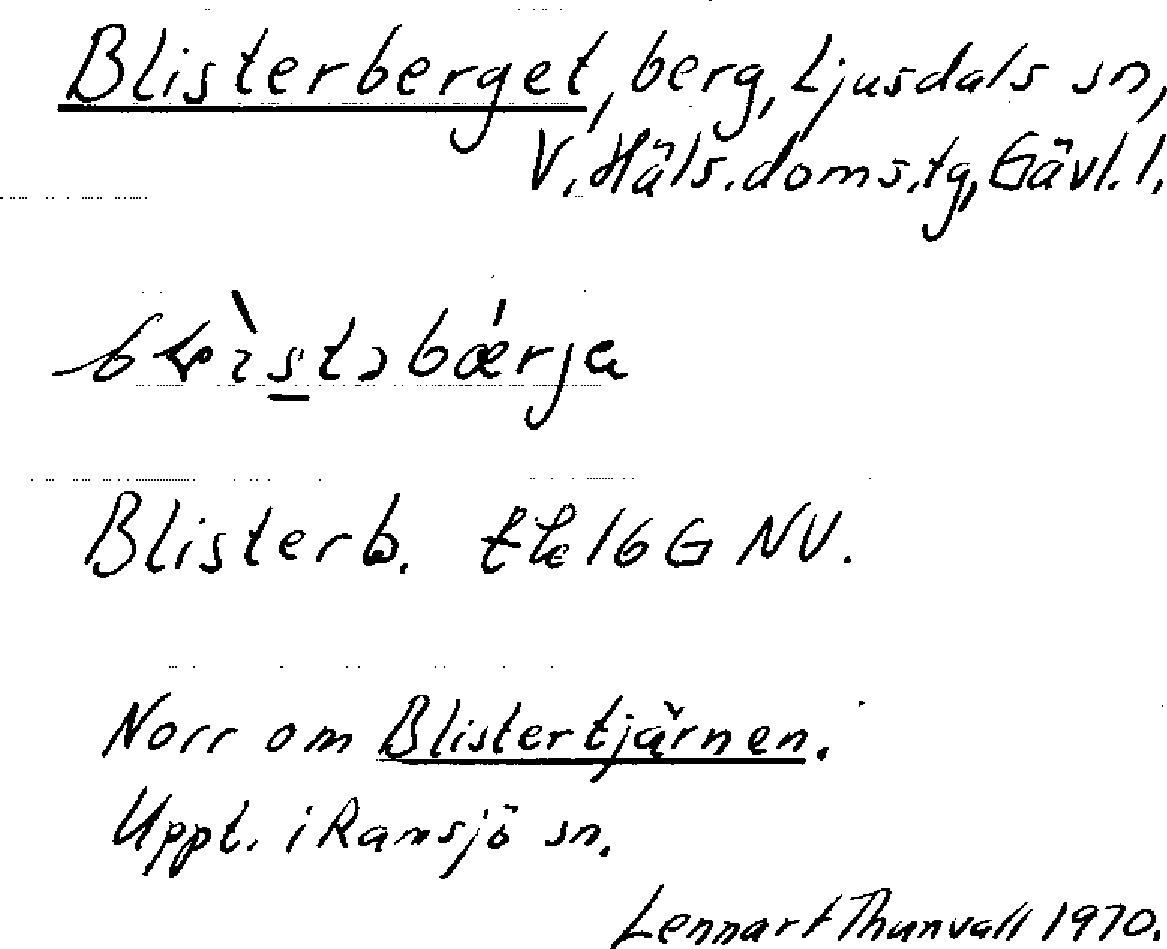 Blisterberget, berg, Ljusdals sn,
V. Häls. doms. tg, Gävl. l.
Blisterb. ek 16 G NV.
Norr om Blistertjärnen.
Uppt. i Ramsjö sn.
Lennart Thunvall 1970.